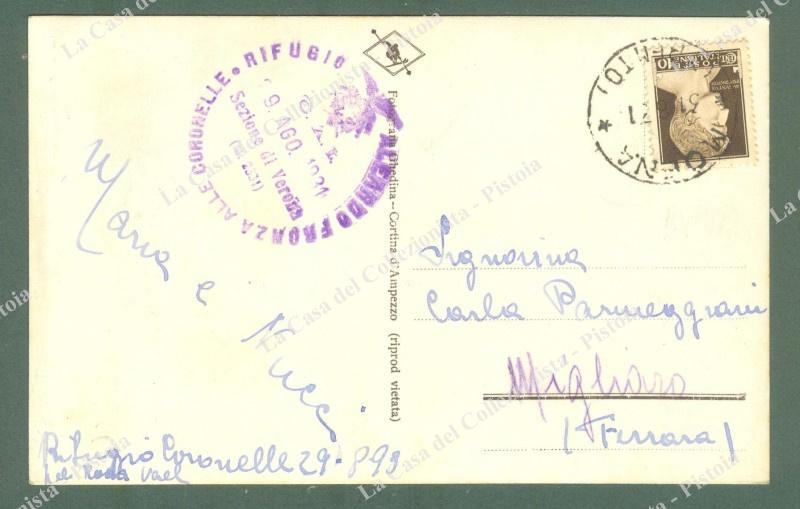 RIFUGIO ALEARDO FRONZA ALLE CORONELLE
C. A. I.
9. AGO. 1931
Sezione di Verona
Fotografia Ghedina - Cortina d'Ampezzo (riprod vietata)
POSTE ITALIANE
10
MOENA
(TRENTO)
Maria e
Signorina
Carla Parmeggiani
Migliaro
(Ferrara)
Rifugio Coronelle 29-8-93
La Casa del Collezionista - Pistoia